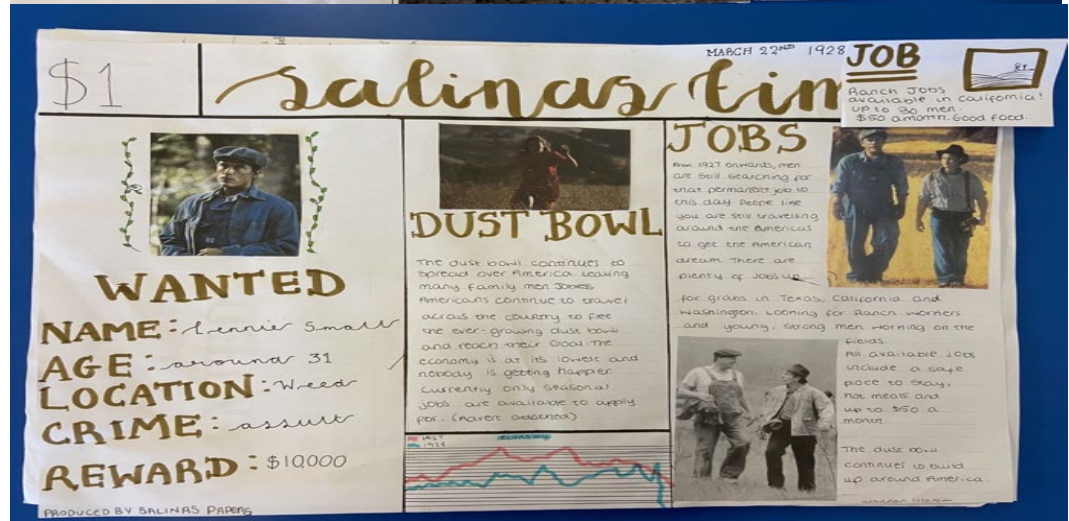 $1
salinas tim
MARCH 22ND 1928
JOB
Ranch Jobs
available in California!
up to 30 men.
$50 amonth. Good food.
WANTED
NAME: Lennie Small
AGE: around 31
LOCATION: Weed
CRIME: assult
REWARD: $10,000
PRODUCED BY SALINAS PAPERS
DUST BOWL
The dust bowl continues to
spread over America leaving
many family men Jobless
Americans continue to travel
across the country to flee
the ever-growing dust bowl
and reach their Goal. The
economy is at its lowest and
nobody is getting happier
Currently only seasonal
jobs are available to apply
for. (Advert attached)
1927
1928
economy
JOBS
From 1927 onwards, men
are still searching for
that permanent job to
this day. People like
you are still travelling
around the Americas
to get the American
dream. There are
plenty of jobs up
for grabs in Texas, California and
Washington. Looking for Ranch workers
and young, strong men working on the
fields.
All available jobs
include a safe
place to stay,
hot meals and
up to $50 a
month.
The dust bowl
continues to build
up around America.